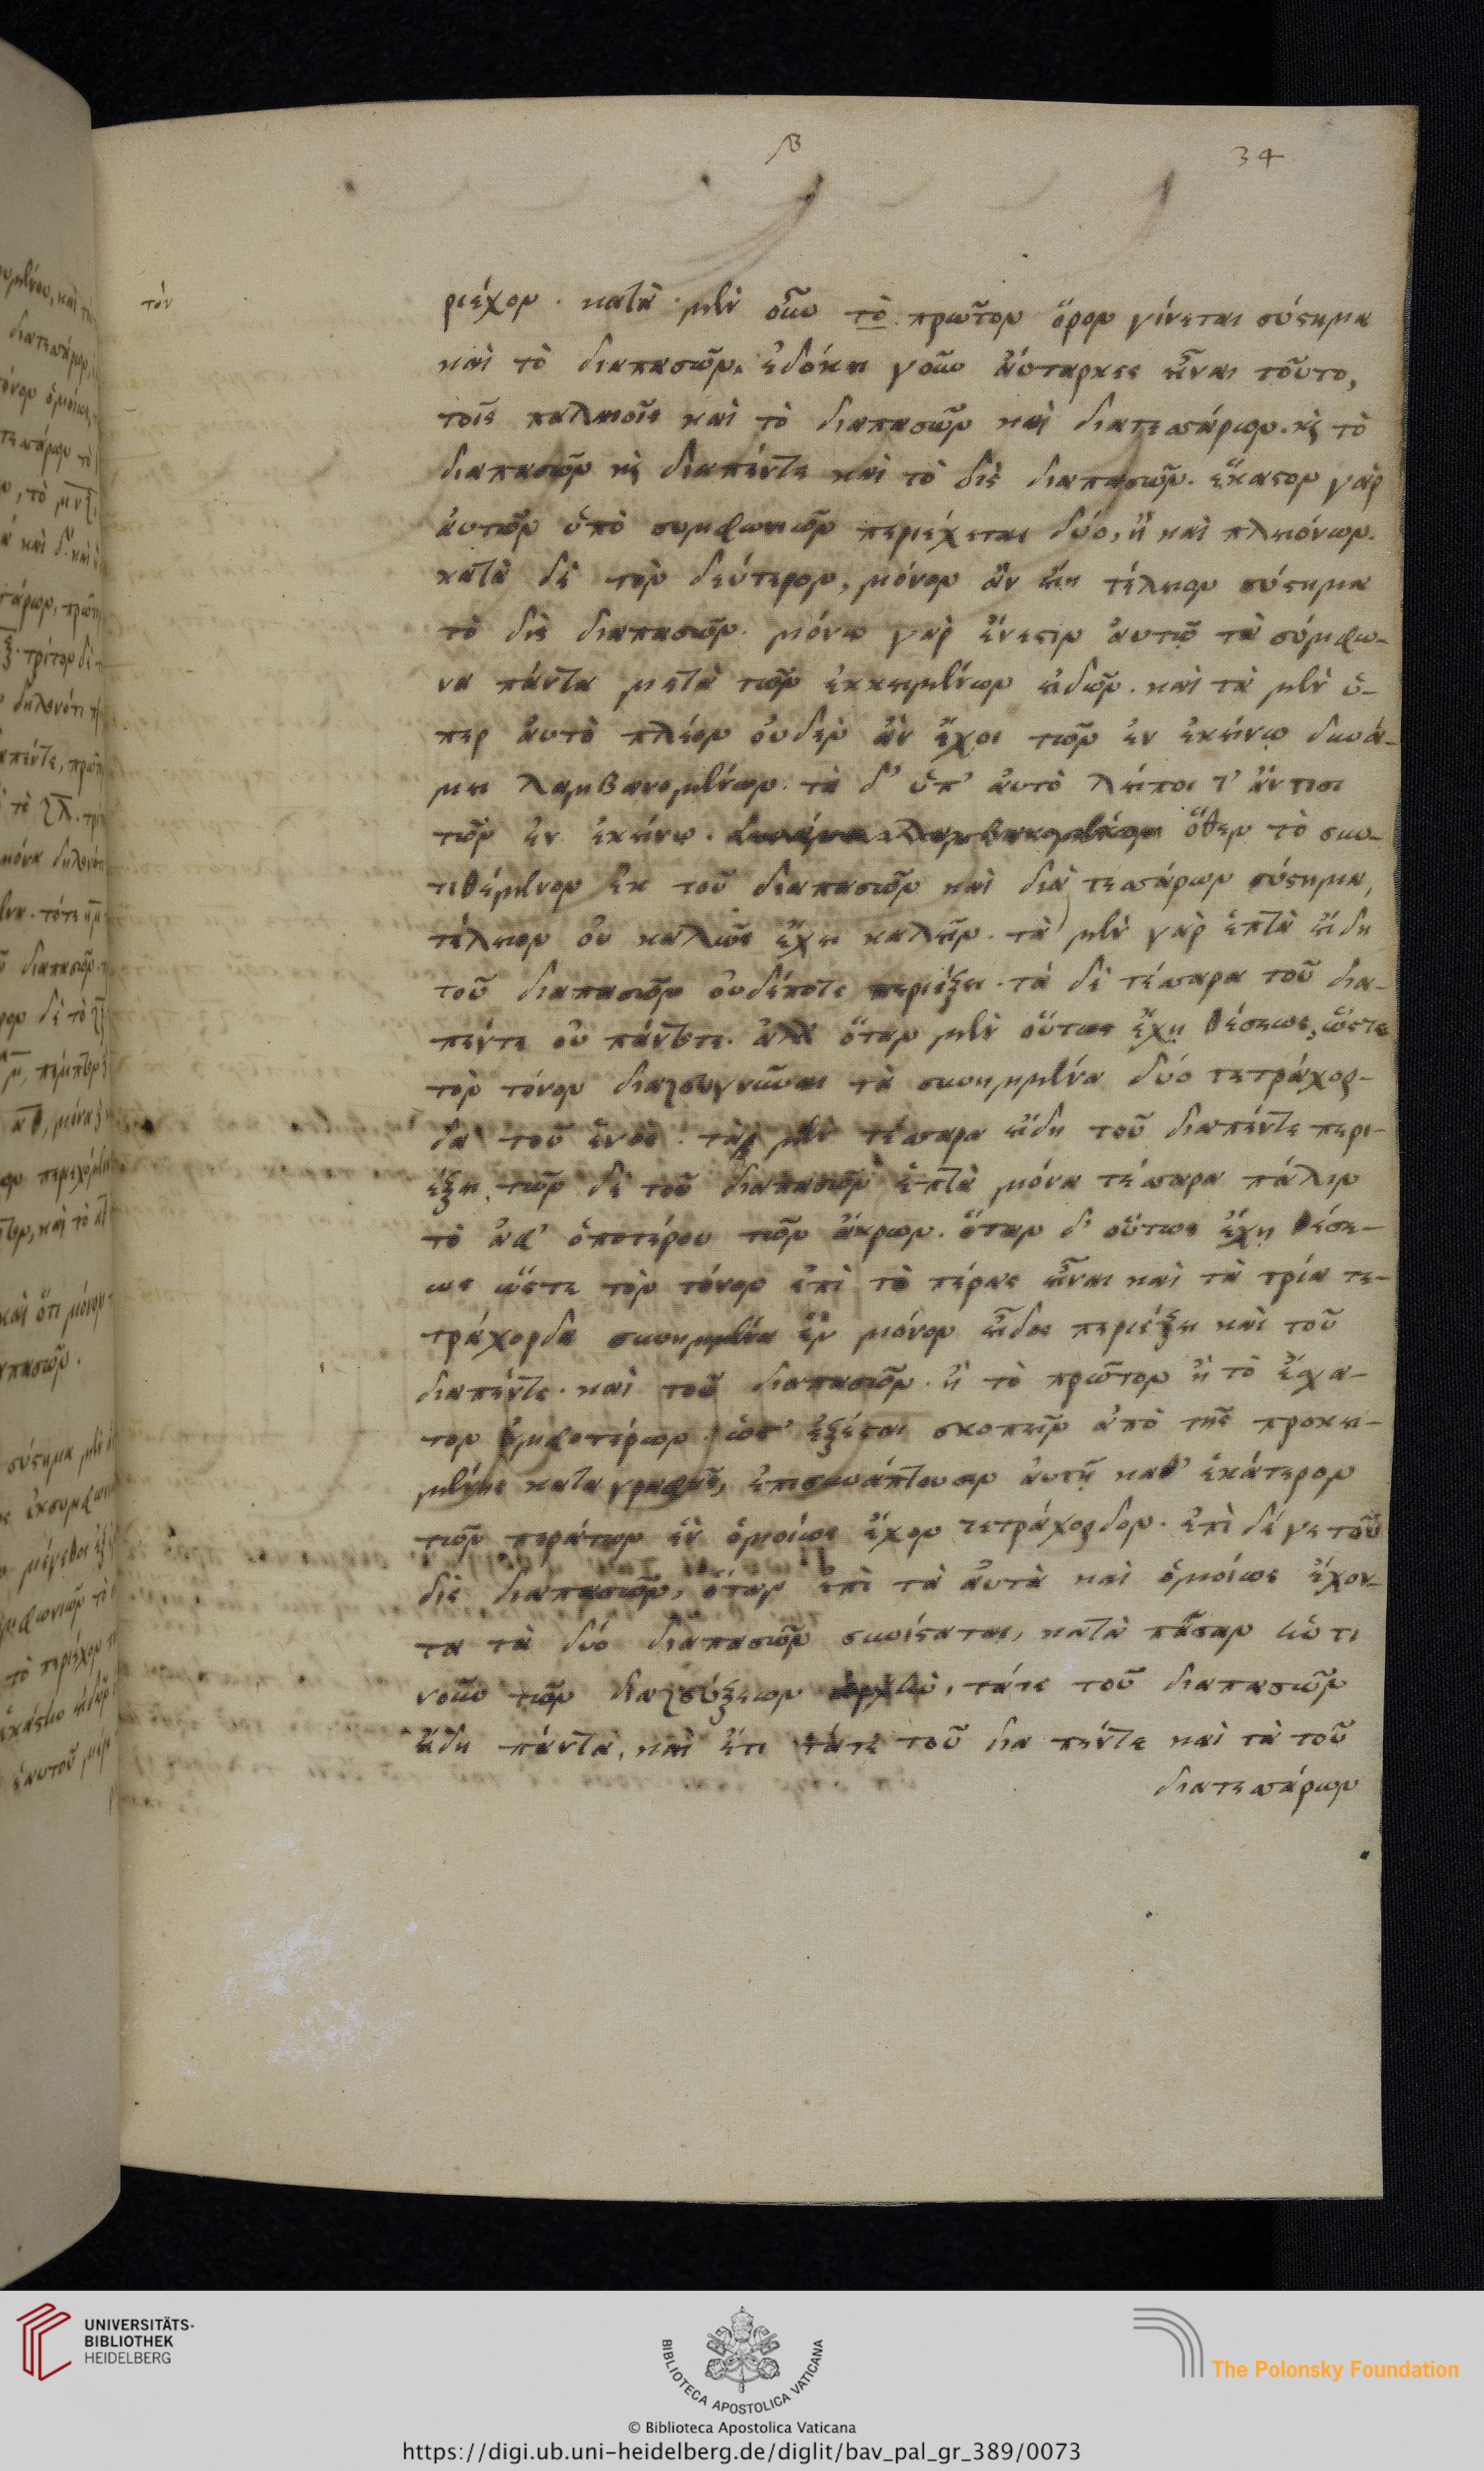 β
34
τὸν
ριέχον. κατὰ μὲν οὖν τὸ πρῶτον ὅρον γίνεται σύστημα
καὶ τὸ διαπασῶν. ἐδόκει γοῦν ἀύταρκες εἶναι τοῦτο,
τοῖς παλαιοῖς καὶ τὸ διαπασῶν καὶ διατεσσάρων. κὶ τὸ
διαπασῶν κὶ διαπέντε καὶ τὸ δὶς διαπασῶν. ἕκαστον γὰρ
ἀυτῶν ὑπὸ συμφωνιῶν περιέχεται δύο, ἢ καὶ πλειόνων.
κατὰ δὲ τὸν δεύτερον, μόνον ἂν εἴη τέλειον σύστημα
τὸ δὶς διαπασῶν. μόνω γὰρ ἔνεστιν ἀυτῷ τὰ σύμφω-
να πάντα μετὰ τῶν ἐκκειμένων εἰδῶν. καὶ τὰ μὲν ὑ-
περ ἀυτὸ πλέον ουδὲν ἂν ἔχοι τῶν ἐν ἐκείνῳ δυνά-
μει λαμβανομένων. τὰ δ' ὑπ' ἀυτὸ λείποι τ' ἄν τισι
τῶν ἐν ἐκείνω. δυνάμει λαμβανομένων ὅθεν τὸ συν-
τιθέμενον ἐκ τοῦ διαπασῶν καὶ διὰ τεσσάρων σύστημα,
τέλειον ου καλῶς ἔχει καλεῖν. τὰ μὲν γὰρ ἑπτὰ εἴδη
τοῦ διαπασῶν ουδέποτε περιέξει. τὰ δὲ τέσσαρα τοῦ δια-
πέντε ου πάντοτε. ἀλλ ὅταν μὲν οὕτως ἔχῃ θέσεως, ὥστε
τὸν τόνον διαζευγνῦναι τὰ συνημμένα δύο τετράχορ-
δα τοῦ ἑνὸς. τὰ μὲν τέσσαρα εἴδη τοῦ διαπέντε περι-
έξει, τῶν δὲ τοῦ διαπασῶν ἑπτὰ μόνα τέσσαρα πάλιν
τὸ ἀφ' ὁποτέρου τῶν ἄκρων. ὅταν δ' οὕτως ἔχῃ θέσε-
ως ὥστε τὸν τόνον ἐπὶ τὸ πέρας εἶναι καὶ τὰ τρία τε-
τράχορδα συνημμένα ἓν μόνον εἶδος περιέξει καὶ τοῦ
διαπέντε. καὶ τοῦ διαπασῶν. ἢ τὸ πρῶτον ἢ τὸ ἔσχα-
τον ἀμφοτέρων. ὡς ἐξέσται σκοπεῖν ἀπὸ τῆς προκει-
μένης καταγραφῆς, ἐπισυνάπτουσιν ἀυτῇ καθ' ἑκάτερον
τῶν περάτων ἓν ὁμοίως ἔχον τετράχορδον. ἐπὶ δέ γε τοῦ
δὶς διαπασῶν, ὅταν ἐπὶ τὰ ἀυτὰ καὶ ὁμοίως ἔχον-
τα τὰ δύο διαπασῶν συνίσταται, κατὰ πᾶσαν ὡτι
νοῦν τῶν διαζεύξεων ἀρχὴν, τάτε τοῦ διαπασῶν
εἴδη πάντα, καὶ ἔτι τάτε τοῦ δια πέντε καὶ τὰ τοῦ
διατεσσάρων
UNIVERSITÄTS-
BIBLIOTHEK
HEIDELBERG
BIBLIOTECA APOSTOLICA VATICANA
The Polonsky Foundation
© Biblioteca Apostolica Vaticana
https://digi.ub.uni-heidelberg.de/diglit/bav_pal_gr_389/0073